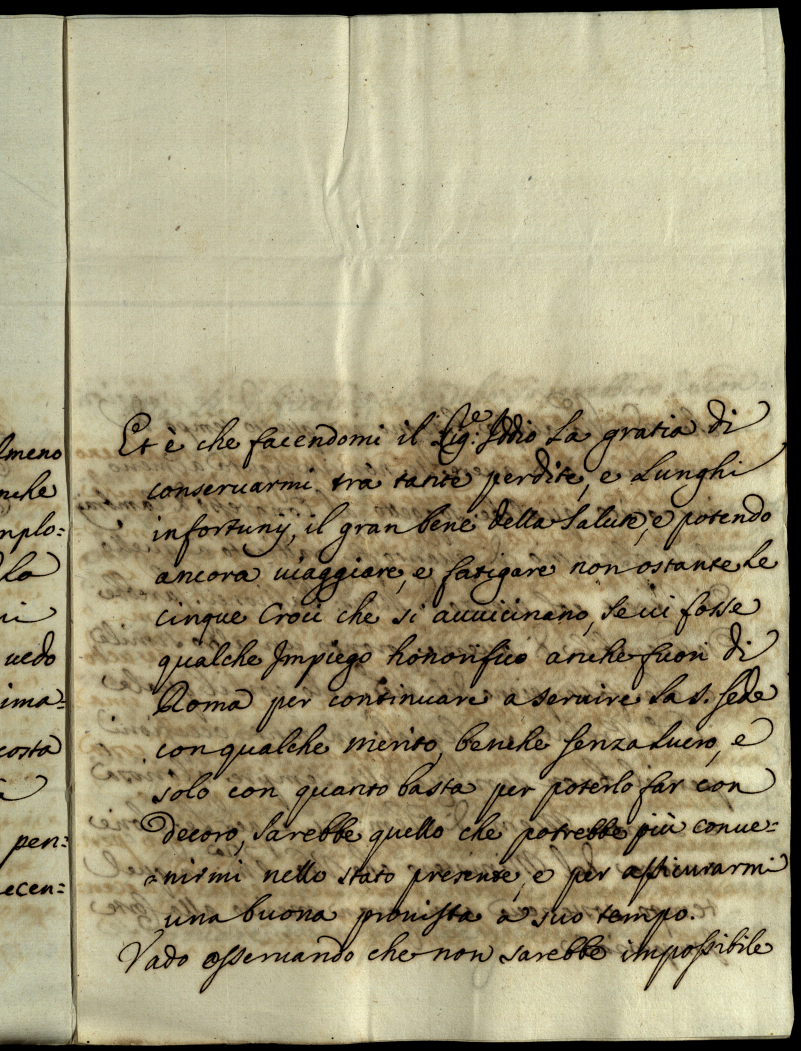 lmeno
nche
mplo:
la
ni
uedo
ima:
costa
pen:
ecen:
Et è che facendomi il Sig.re Iddio la gratia di
conseruarmi trà tante perdite, e lunghi
infortunij, il gran bene della salute, e potendo
ancora uiaggiare, e fatigare non ostante le
cinque Croci che si auuicinano, se ui fosse
qualche Impiego honorifico anche fuori di
Roma per continuare a seruire la S. Sede
con qualche merito, benche senza lucro, e
solo con quanto basta per poterlo far con
decoro, sarebbe quello che potrebbe più conue:
nirmi nello stato presente, e per assicurarmi
una buona prouista a suo tempo.
Vado osseruando che non sarebbe impossibile